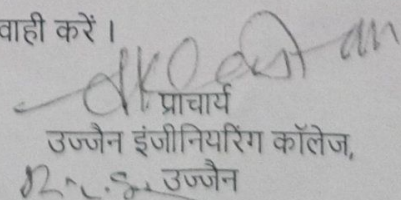 वाही करें ।
प्राचार्य
उज्जैन इंजीनियरिंग कॉलेज,
उज्जैन